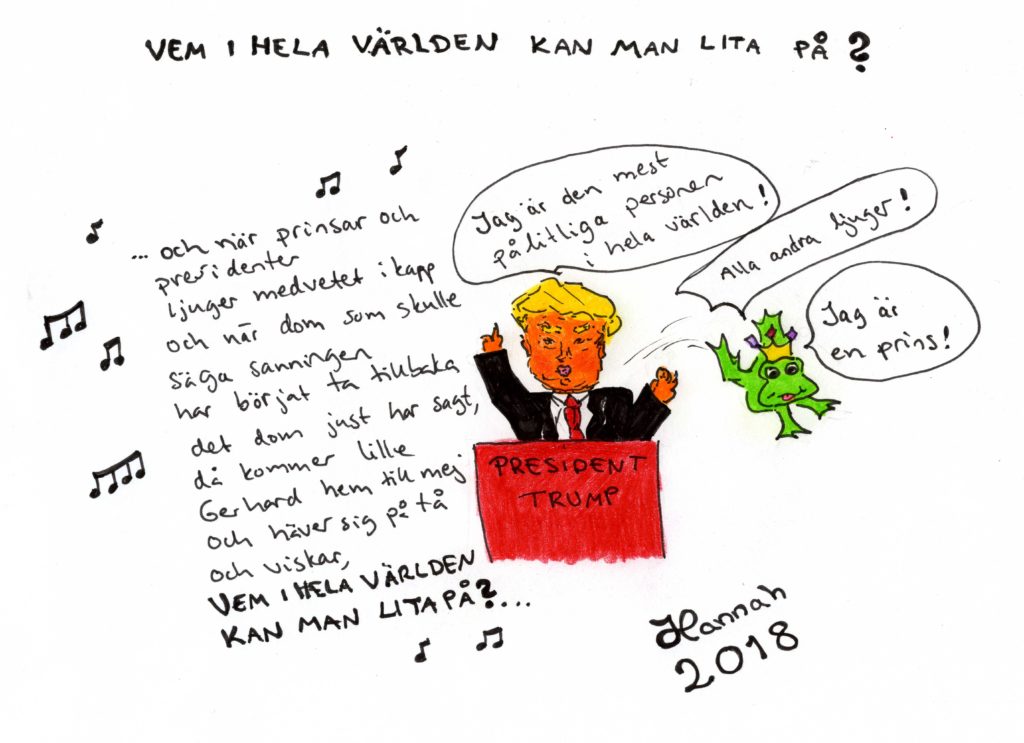 VEM I HELA VÄRLDEN KAN MAN LITA PÅ?
... och när prinsar och
presidenter
ljuger medvetet i kapp
och när dom som skulle
säga sanningen
har börjat ta tillbaka
det dom just har sagt,
då kommer lille
Gerhard hem till mej
och häver sig på tå
och viskar,
VEM I HELA VÄRLDEN
KAN MAN LITA PÅ?...
Jag är den mest
pålitliga personen
i hela världen!
Alla andra ljuger!
Jag är
en prins!
PRESIDENT
TRUMP
Hannah
2018